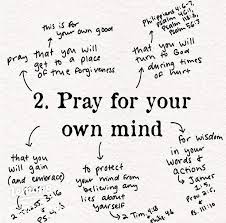 this is for
your own good
pray that you will
get to a place
of true forgiveness
Philippians 4:6-7,
Psalm 46:1,
Psalm 118:8,
Psalm 56:3
that you will
turn to God
during times
of hurt
2. Pray for your
own mind
that you
will gain
(and embrace)
2 Tim 3:16
PS 4:3
to protect
your mind from
believing any
lies about
yourself
2 Tim 4:18
for wisdom
in your
words &
actions
James
1:5,
Prov 2:6,